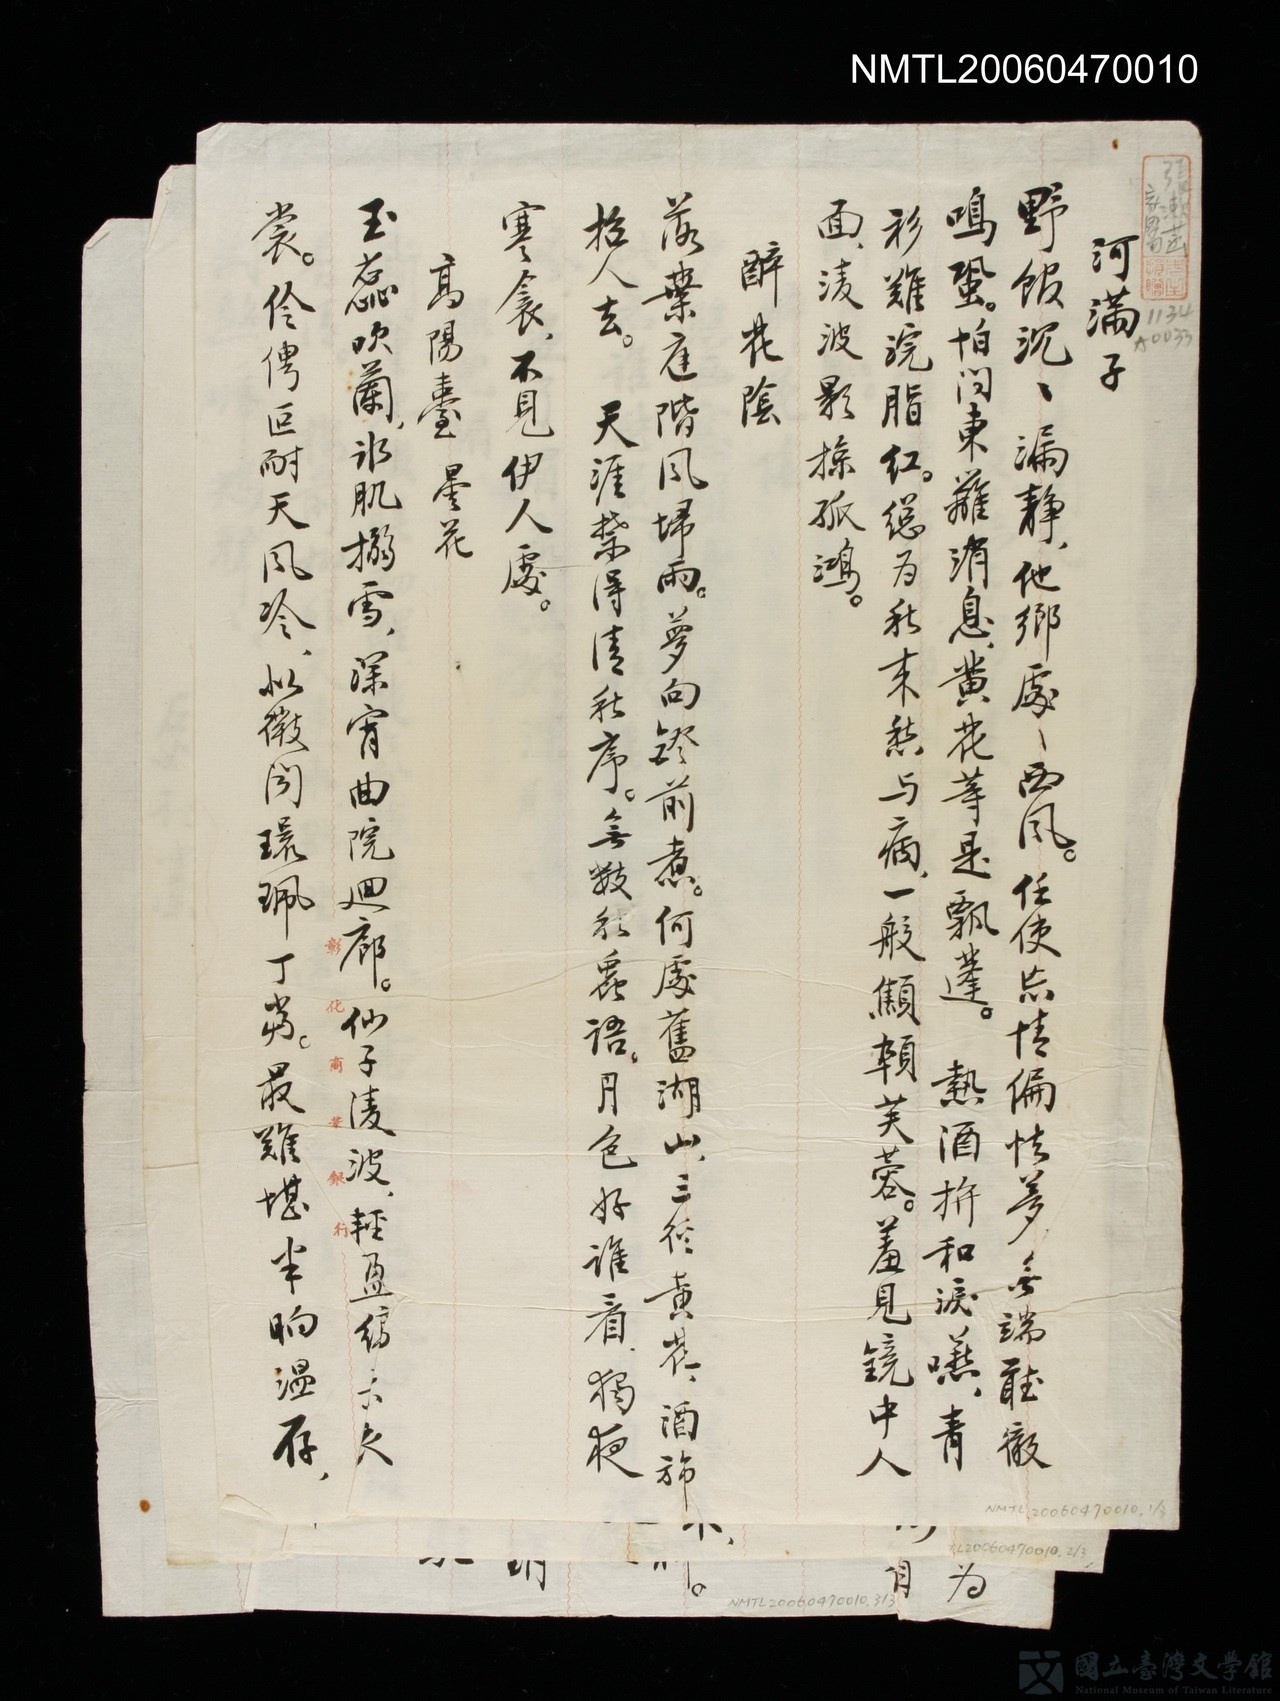 NMTL20060470010
河滿子
野館沉、漏静，他鄉處、西風。任使忘情偏怯夢，無端聽徹
鳴蛩。怕問東籬消息，黄花等是飄蓬。　熱酒拚和淚嚥，青
衫難浣脂紅。總为秋来愁与病，一般顦頓芙蓉。羞見鏡中人
面，淩波影掠孤鴻。
醉花陰
落葉庭階風埽雨。夢向鐙前煮。何處舊湖山，三徑黄花，酒旆
招人去。　天涯禁得清秋序。無數秋蟲語。月色好誰看，獨夜
寒衾，不見伊人處。
高陽臺 曇花
玉蕊吹蘭，冰肌搦雪，深宵曲院迴廊。仙子淩波，輕盈縞衣
裳。伶俜叵耐天風冷，似微聞環珮丁當。最難堪半晌温存，
彰化商業銀行
1134
A0033
NMTL20060470010.1/3
L20060470010.2/3
NMTL20060470010.3/3
为
月
國立臺灣文學館
National Museum of Taiwan Literature